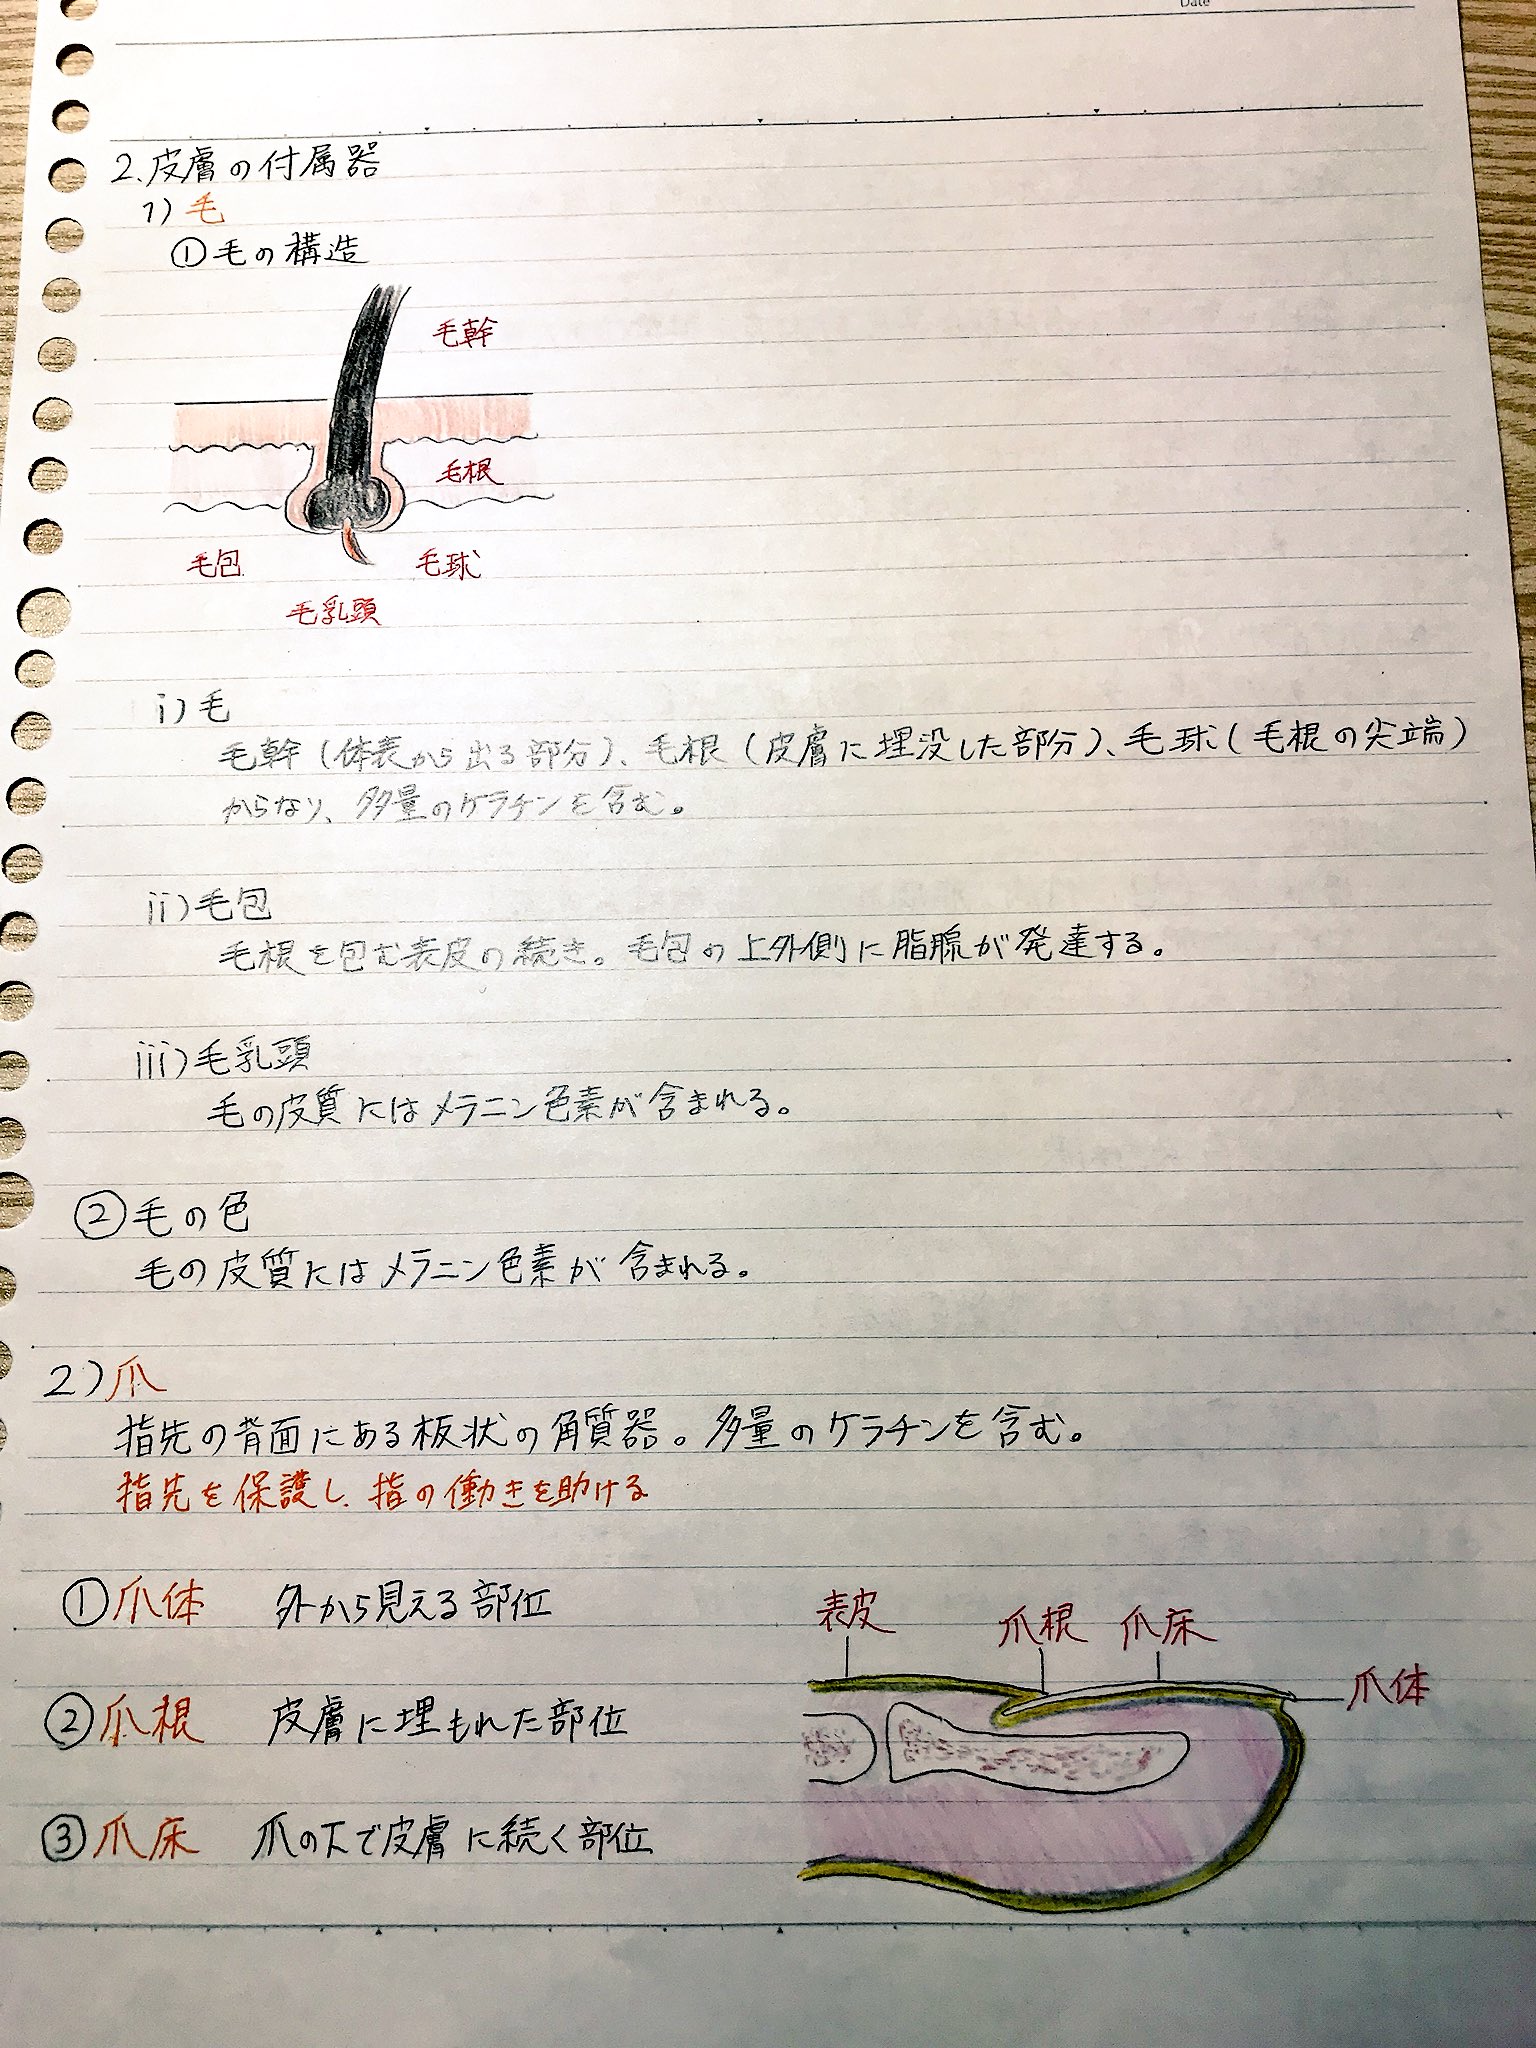 Date
2.皮膚の付属器
1)毛
①毛の構造
毛幹
毛根
毛包
毛球
毛乳頭
i)毛
毛幹(体表から出る部分)、毛根(皮膚に埋没した部分)、毛球(毛根の尖端)
からなり、多量のケラチンを含む。
ii)毛包
毛根を包む表皮の続き。毛包の上外側に脂腺が発達する。
iii)毛乳頭
毛の皮質にはメラニン色素が含まれる。
②毛の色
毛の皮質にはメラニン色素が含まれる。
2)爪
指先の背面にある板状の角質器。多量のケラチンを含む。
指先を保護し、指の働きを助ける
①爪体 外から見える部位
②爪根 皮膚に埋もれた部位
③爪床 爪の下で皮膚に続く部位
表皮
爪根
爪床
爪体